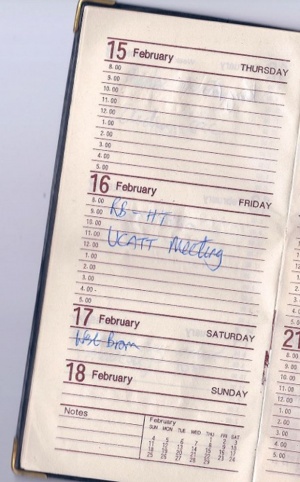 15 February THURSDAY
8.00
9.00
10.00
11.00
12.00
1.00
2.00
3.00
4.00
5.00
16 February FRIDAY
8.00
9.00 RB - HT
10.00
11.00 UCATT Meeting
12.00
1.00
2.00
3.00
4.00
5.00
17 February SATURDAY
West Brom
18 February SUNDAY
Notes
February
SUN MON TUE WED THU FRI SAT
1 2 3
4 5 6 7 8 9 10
11 12 13 14 15 16 17
18 19 20 21 22 23 24
25 26 27 28
21
8.00
9.00
10.00
11.00
12.00
1.00
2.00
3.00
4.00
5.00